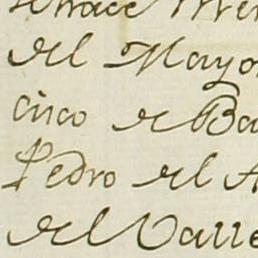 del Mayo
cisco de Ba
Pedro del A
del Valle